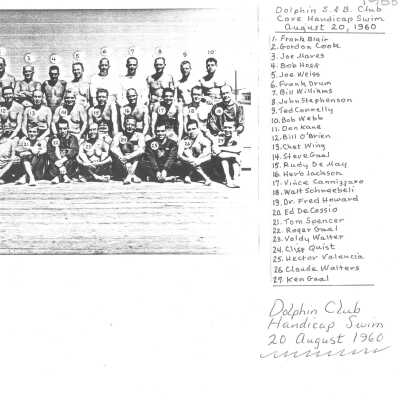 Dolphin S. & B. Club
Cove Handicap Swim
August 20, 1960
1. Frank Blair
2. Gordon Cook
3. Joe Mares
4. Bob Hess
5. Joe Weiss
6. Frank Drum
7. Bill Williams
8. John Stephenson
9. Ted Connelly
10. Bob Webb
11. Don Kane
12. Bill O'Brien
13. Chet Wing
14. Steve Gaal
15. Rudy De May
16. Herb Jackson
17. Vince Cannizzaro
18. Walt Schneebeli
19. Dr. Fred Howard
20. Ed DeCossio
21. Tom Spencer
22. Roger Gaal
23. Voldy Walter
24. Cliff Quist
25. Hector Valencia
26. Claude Walters
27. Ken Gaal
Dolphin Club
Handicap Swim
20 August 1960